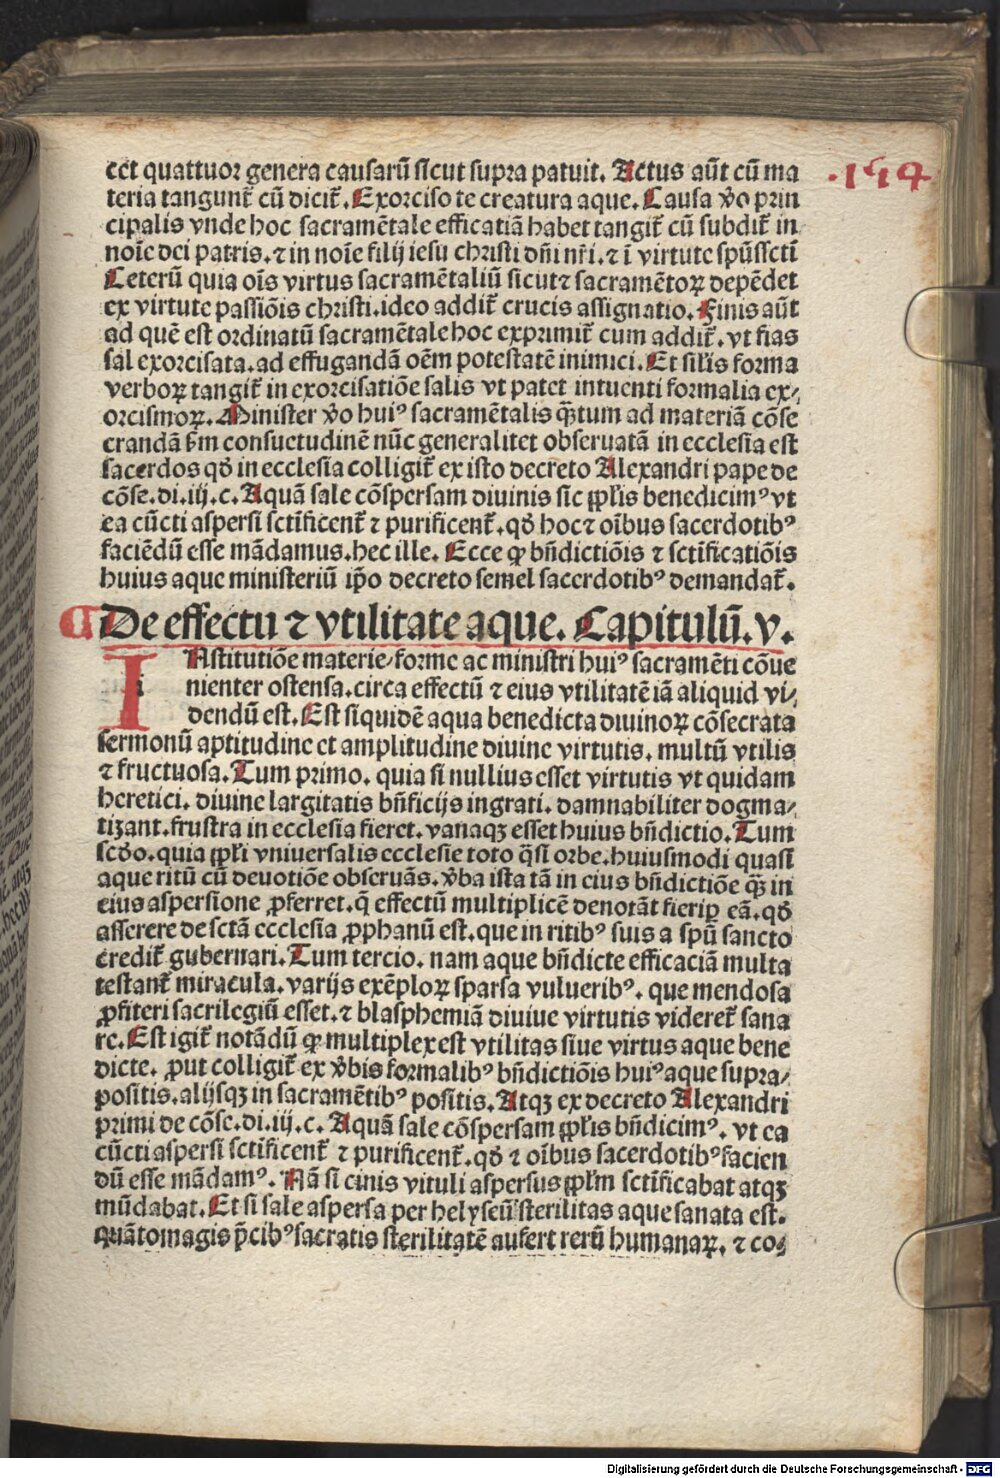 cet quattuor genera causarū sicut supra patuit. Actus aūt cū ma
teria tangunt̄ cū dicit̄. Exorciso te creatura aque. Causa v̄o prin
cipalis vnde hoc sacramētale efficatiā habet tangit̄ cū subdit̄ in
noīe dei patris. ⁊ in noīe filij iesu christi dn̄i nr̄i. ⁊ ī virtute spūssctī
Ceterū quia oīs virtus sacramētaliū sicut⁊ sacramētoꝝ depēdet
ex virtute passiōis christi. ideo addit̄ crucis assignatio. Finis aūt
ad quē est ordinatū sacramētale hoc exprimit̄ cum addit̄. vt fias
sal exorcisata. ad effugandā oēm potestatē inimici. Et silīs forma
verboꝝ tangit̄ in exorcisatiōe salis vt patet intuenti formalia ex⸗
orcismoꝝ. Minister v̄o huiꝰ sacramētalis qꝫtum ad materiā cōse
crandā s̄m consuetudinē nūc generalitet obseruatā in ecclesia est
sacerdos qd̄ in ecclesia colligit̄ ex isto decreto Alexandri pape de
cōse. di. iij. c. Aquā sale cōspersam diuinis sic ppl̄is benedicimꝰ vt
ea cūcti aspersi sctīficent̄ ⁊ purificent̄. qd̄ hoc⁊ oībus sacerdotibꝰ
faciēdū esse mādamus. hec ille. Ecce ꝙ bn̄dictiōis ⁊ sctīficatiōis
huius aque ministeriū ip̄o decreto semel sacerdotibꝰ demandat̄.
.154
¶ De effectu ⁊ vtilitate aque. Capitulū. v.
INstitutiōe materie/forme ac ministri huiꝰ sacramēti cōue
nienter ostensa. circa effectū ⁊ eius vtilitatē iā aliquid vi⸗
dendū est. Est siquidē aqua benedicta diuinoꝝ cōsecrata
sermonū aptitudine et amplitudine diuine virtutis. multū vtilis
⁊ fructuosa. Tum primo. quia si nullius esset virtutis vt quidam
heretici. diuine largitatis bn̄ficijs ingrati. damnabiliter dogma⸗
tizant. frustra in ecclesia fieret. vanaqꝫ esset huius bn̄dictio. Tum
scd̄o. quia ppl̄i vniuersalis ecclesie toto q̄si orbe. huiusmodi quasi
aque ritū cū deuotiōe obseruās. v̄ba ista tā in eius bn̄dictiōe qꝫ in
eius aspersione ꝓferret. q̄ effectū multiplicē denotāt fieri ꝑ eā. qd̄
asserere de sctā ecclesia ꝓphanū est. que in ritibꝰ suis a spū sancto
credit̄ gubernari. Tum tercio. nam aque bn̄dicte efficaciā multa
testant̄ miracula. varijs exēploꝝ sparsa vulueribꝰ. que mendosa
ꝓfiteri sacrilegiū esset. ⁊ blasphemiā diuiue virtutis videret̄ sana
re. Est igit̄ notādū ꝙ multiplex est vtilitas siue virtus aque bene
dicte. ꝓut colligit̄ ex v̄bis formalibꝰ bn̄dictiōis huiꝰ aque supra⸗
positis. alijsqꝫ in sacramētibꝰ positis. Atqꝫ ex decreto Alexandri
primi de cōse. di. iij. c. Aquā sale cōspersam ppl̄is bn̄dicimꝰ. vt ea
cūcti aspersi sctīficent̄ ⁊ purificent̄. qd̄ ⁊ oībus sacerdotibꝰ facien
dū esse mādamꝰ. Nā si cinis vituli aspersus ppl̄m sctīficabat atqꝫ
mūdabat. Et si sale aspersa per helyseū sterilitas aque sanata est.
quātomagis p̄cibꝰ sacratis sterilitatē aufert rerū humanaꝝ. ⁊ co⸗
Digitalisierung gefördert durch die Deutsche Forschungsgemeinschaft - DFG